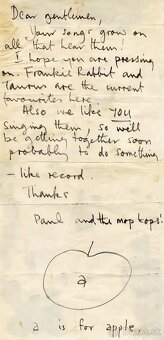 Dear gentlemen,
Your songs grow on
all that hear them!
I hope you are pressing
on. Frankie Rabbit and
Taurus are the current
favourites here.
Also we like YOU
singing them, so will
be getting together soon
probably to do something
– like record.
Thanks
Paul and the mop tops!
a
a is for apple